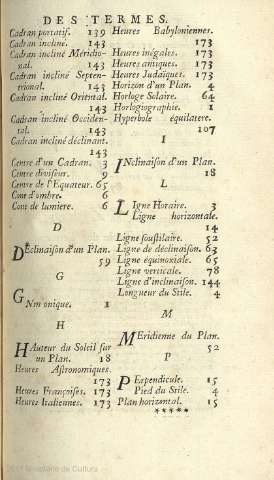 DES TERMES.
Cadran portatif. 139
Cadran incliné. 143
Cadran incliné Méridio-
nal. 143
Cadran incliné Septen-
trional. 143
Cadran incliné Oriental.
143
Cadran incliné Occiden-
tal. 143
Cadran incliné déclinant.
143
Centre d'un Cadran. 3
Centre diviseur. 9
Centre de l'Equateur. 65
Cone d'ombre. 6
Cone de lumiere. 6
D
DEclinaison d'un Plan.
59
G
GNomonique. 1
H
HAuteur du Soleil sur
un Plan. 18
Heures Astronomiques.
173
Heures Françoises. 173
Heures Italiennes. 173
Heures Babyloniennes.
173
Heures inégales. 173
Heures antiques. 173
Heures Judaïques. 173
Horizon d'un Plan. 4
Horloge Solaire. 64
Horlogiographie. 1
Hyperbole équilatere.
107
I
INclinaison d'un Plan.
18
L
LIgne Horaire. 3
Ligne horizontale.
14
Ligne soustilaire. 52
Ligne de déclinaison. 63
Ligne équinoxiale. 65
Ligne verticale. 78
Ligne d'inclinaison. 144
Longueur du Stile. 4
M
MEridienne du Plan.
52
P
PErpendicule. 15
Pied du Stile. 4
Plan horizontal. 15
*****
Ministerio de Cultura